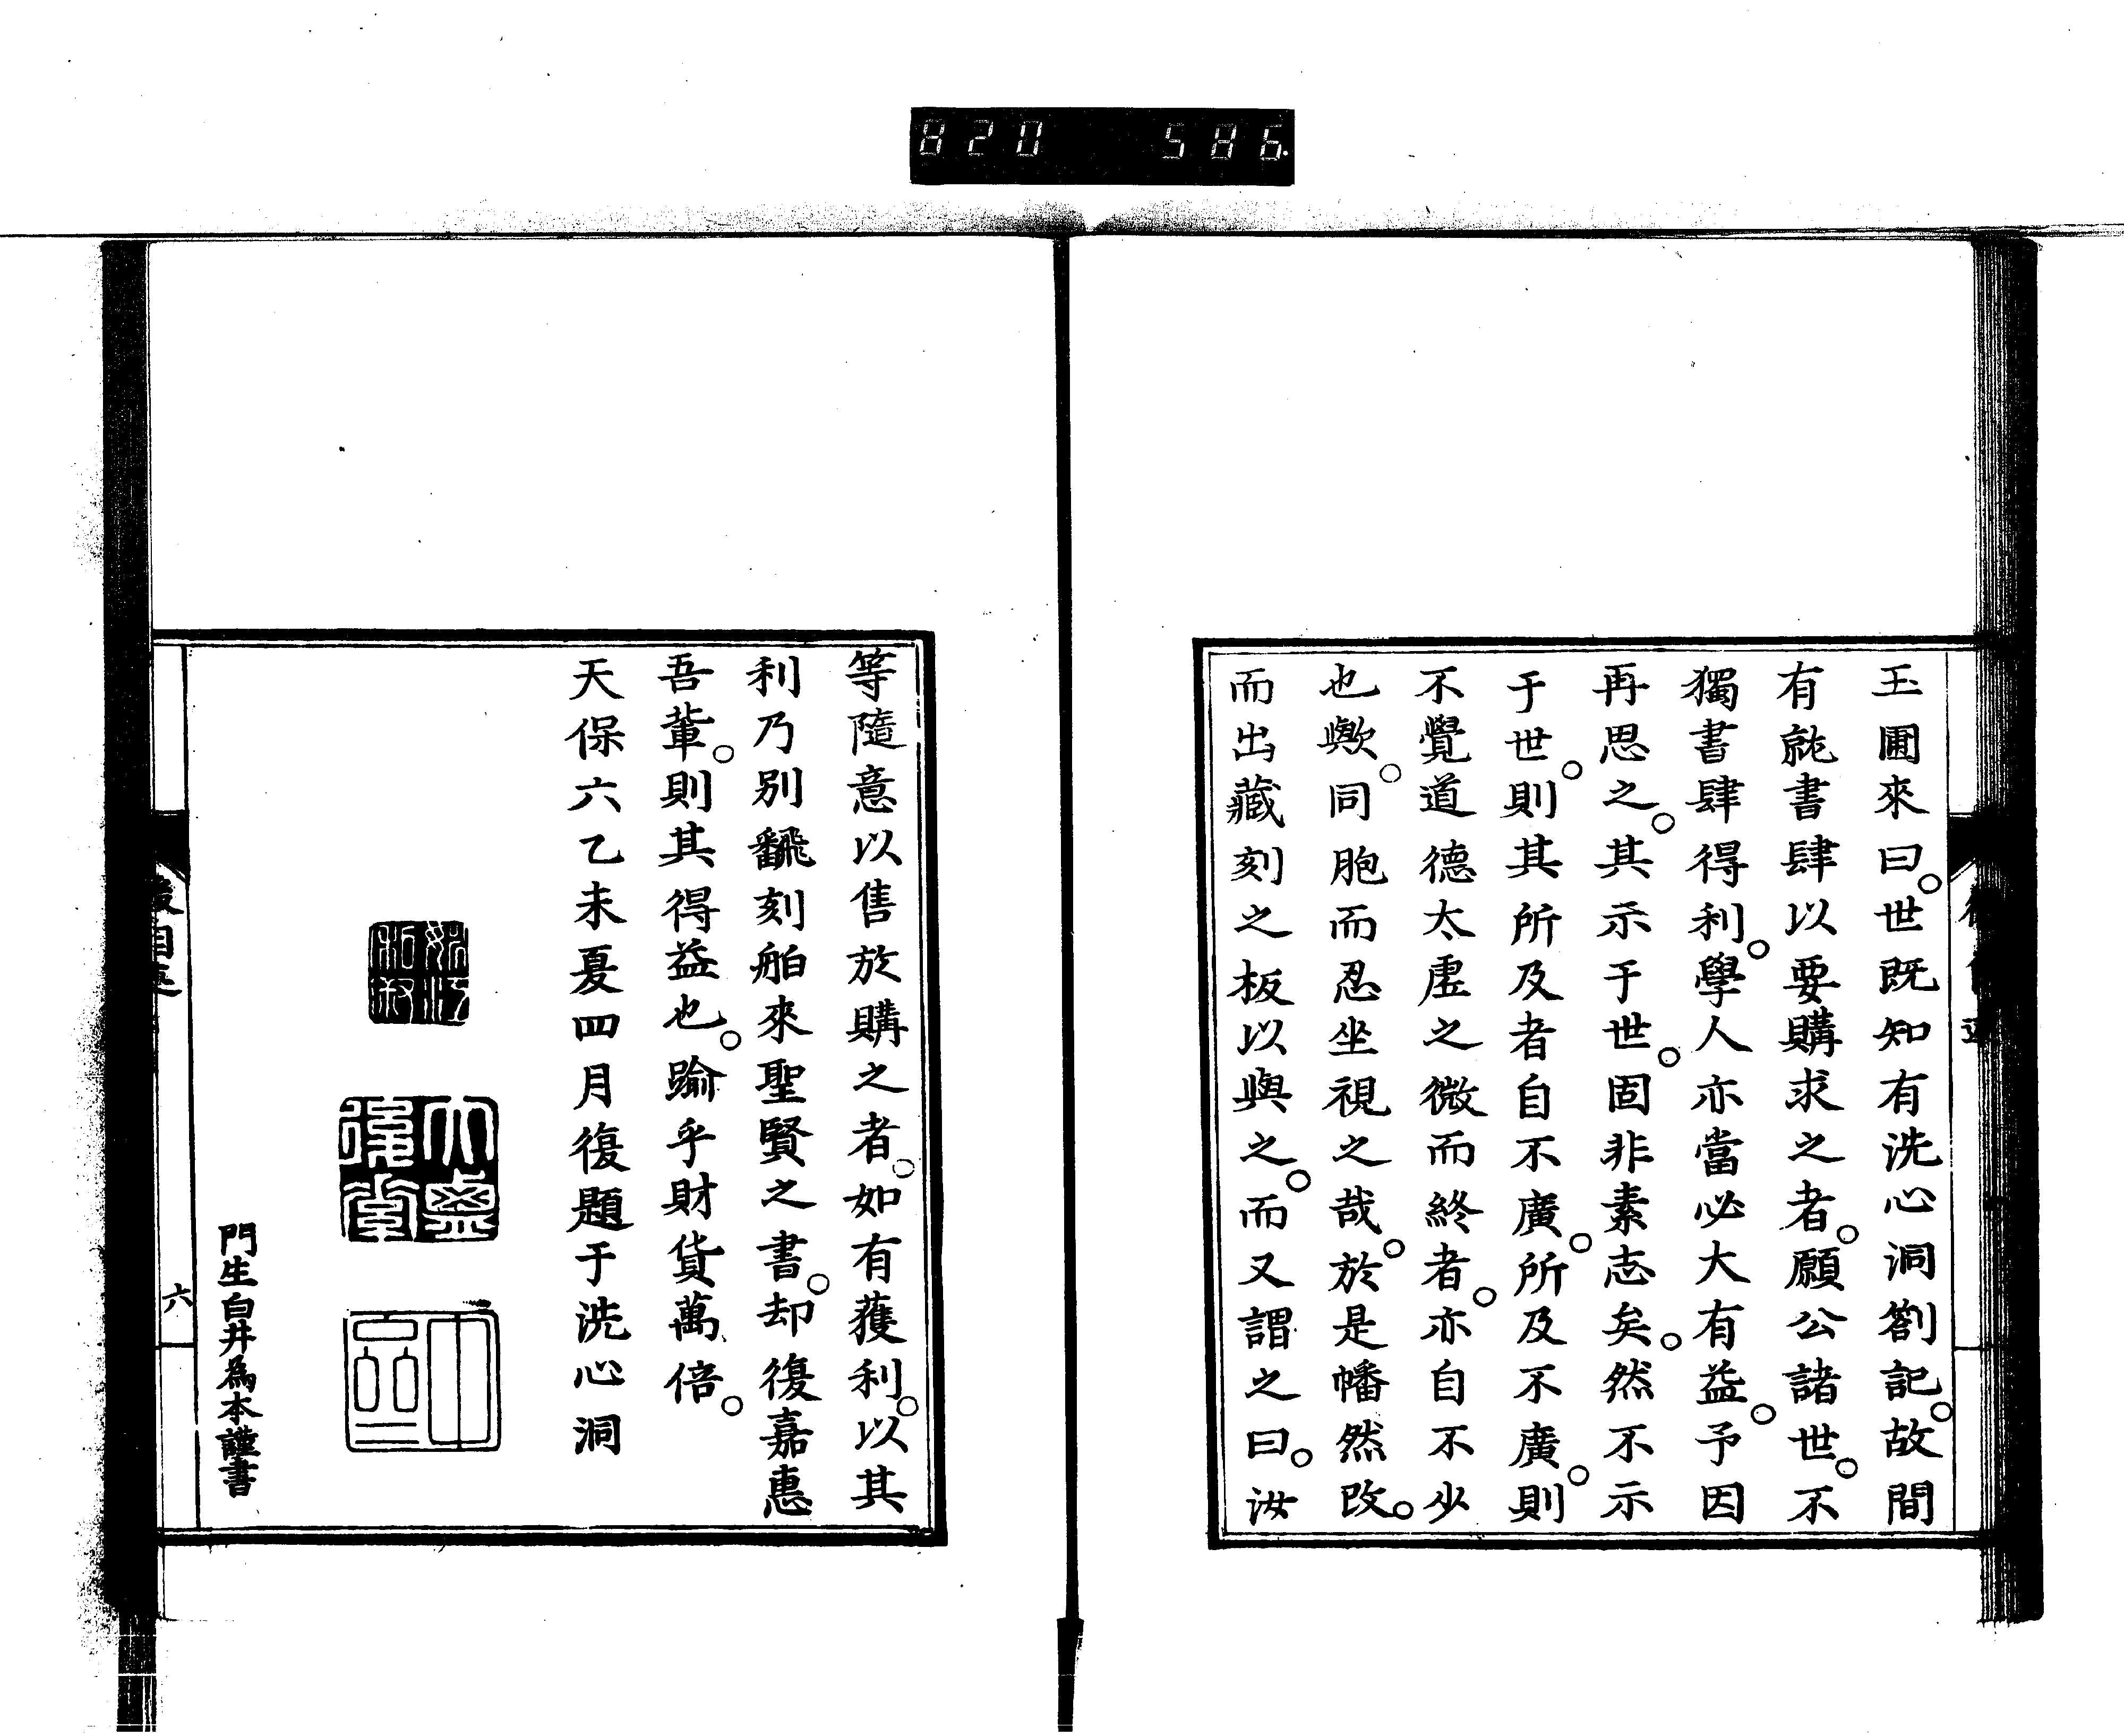 820 586
玉圃來曰。世既知有洗心洞劄記。故間
有就書肆以要購求之者。願公諸世。不
獨書肆得利。學人亦當必大有益。予因
再思之。其示于世。固非素志矣。然不示
于世。則其所及者自不廣。所及不廣。則
不覺道德太虛之微而終者。亦自不少
也歟。同胞而忍坐視之哉。於是幡然改。
而出藏刻之板以與之。而又謂之曰。汝
等隨意以售於購之者。如有獲利。以其
利乃别飜刻舶來聖賢之書。却復嘉惠
吾輩。則其得益也。踰乎財貨萬倍。
天保六乙未夏四月復題于洗心洞
門生白井為本謹書
六